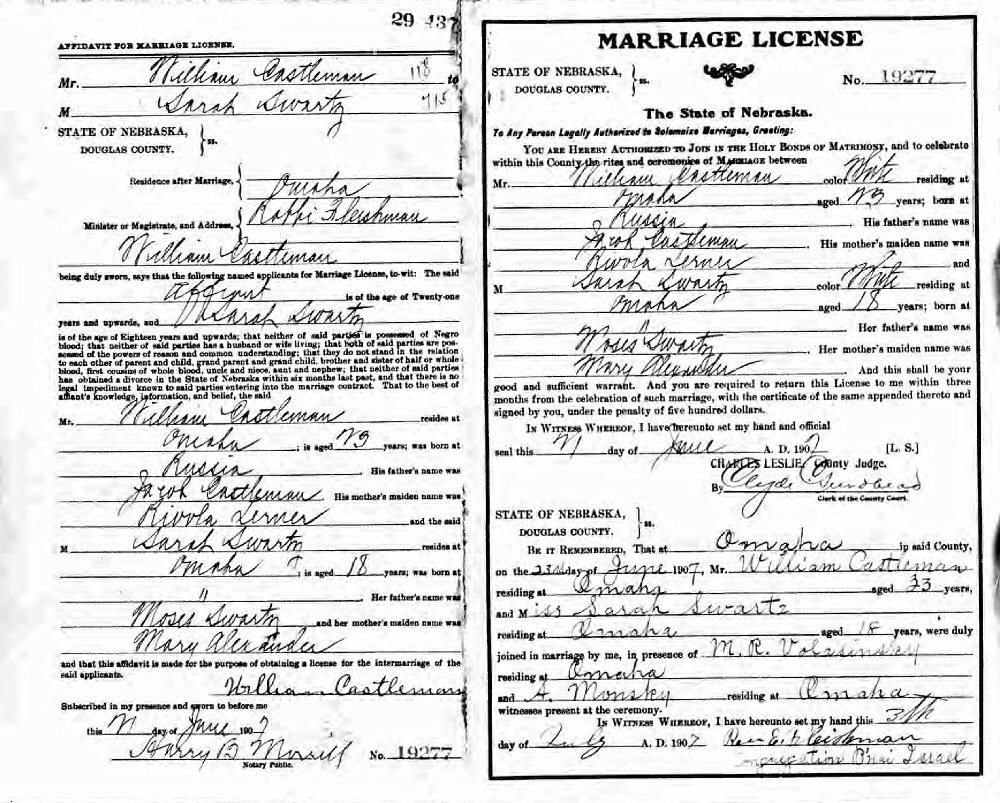 29 437
AFFIDAVIT FOR MARRIAGE LICENSE.
Mr. William Castleman 118 to
M Sarah Swartz 715
STATE OF NEBRASKA, } ss.
DOUGLAS COUNTY.
Residence after Marriage, { Omaha
Minister or Magistrate, and Address, { Rabbi Fleishman
William Castleman
being duly sworn, says that the following named applicants for Marriage License, to-wit: The said
Affiant is of the age of Twenty-one
years and upwards, and Sarah Swartz
is of the age of Eighteen years and upwards; that neither of said parties is possessed of Negro
blood; that neither of said parties has a husband or wife living; that both of said parties are pos-
sessed of the powers of reason and common understanding; that they do not stand in the relation
to each other of parent and child, grand parent and grand child, brother and sister of half or whole
blood, first cousins of whole blood, uncle and niece, aunt and nephew; that neither of said parties
has obtained a divorce in the State of Nebraska within six months last past, and that there is no
legal impediment known to said parties entering into the marriage contract. That to the best of
affiant's knowledge, information, and belief, the said
Mr. William Castleman resides at
Omaha ; is aged 23 years; was born at
Russia His father's name was
Jacob Castleman His mother's maiden name was
Rivola Lerner and the said
M Sarah Swartz resides at
Omaha ; is aged 18 years; was born at
" Her father's name was
Moses Swartz and her mother's maiden name was
Mary Alexander
and that this affidavit is made for the purpose of obtaining a license for the intermarriage of the
said applicants.
William Castleman
Subscribed in my presence and sworn to before me
this 21 day of June 1907
Harry B Morrill No. 19277
Notary Public.
MARRIAGE LICENSE
STATE OF NEBRASKA, } ss.
DOUGLAS COUNTY.
No. 19277
The State of Nebraska.
To Any Person Legally Authorized to Solemnize Marriages, Greeting:
YOU ARE HEREBY AUTHORIZED TO JOIN IN THE HOLY BONDS OF MATRIMONY, and to celebrate
within this County the rites and ceremonies of MARRIAGE between
Mr. William Castleman color White residing at
Omaha aged 23 years; born at
Russia . His father's name was
Jacob Castleman . His mother's maiden name was
Rivola Lerner and
M Sarah Swartz color White residing at
Omaha aged 18 years; born at
" . Her father's name was
Moses Swartz . Her mother's maiden name was
Mary Alexander . And this shall be your
good and sufficient warrant. And you are required to return this License to me within three
months from the celebration of such marriage, with the certificate of the same appended thereto and
signed by you, under the penalty of five hundred dollars.
IN WITNESS WHEREOF, I have hereunto set my hand and official
seal this 21 day of June A. D. 1907 [L. S.]
CHARLES LESLIE, County Judge.
By Clyde Sundblad
Clerk of the County Court.
STATE OF NEBRASKA, } ss.
DOUGLAS COUNTY.
BE IT REMEMBERED, That at Omaha in said County,
on the 23d day of June 1907, Mr. William Castleman
residing at Omaha aged 23 years,
and Miss Sarah Swartz
residing at Omaha aged 18 years, were duly
joined in marriage by me, in presence of M. R. Volasinsky
residing at Omaha
and A. Monsky residing at Omaha
witnesses present at the ceremony.
IN WITNESS WHEREOF, I have hereunto set my hand this 3th
day of July A. D. 1907 Rev E. Fleishman
Congregation B'nai Israel